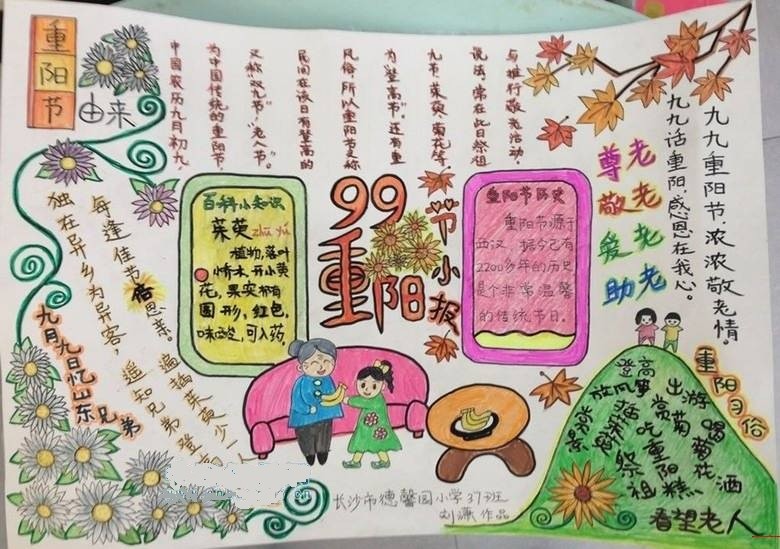 重阳节
由来
中国农历九月初九,
为中国传统的重阳节,
又称"双九节","老人节"。
民间在该日有登高的
风俗,所以重阳节又称
为"登高节"。还有重
九节、茱萸、菊花等,
说法,常在此日祭祖
与推行敬老活动。
九九重阳节,浓浓敬老情。
九九话重阳,感恩在我心。
尊老
敬老
爱老
助老
百科小知识
茱萸zhū yú
植物,落叶
小乔木,开小黄
花,果实椭有
圆形,红色,
味酸,可入药,
99
重阳
节小报
重阳节历史
重阳节源于
西汉,据今已有
2200多年的历史
是个非常温馨
的传统节日。
九月九日忆山东兄弟
独在异乡为异客,
每逢佳节倍思亲。
遥知兄弟登
遍插茱萸少一人
重阳习俗
登高
放风筝
出游
赏菊
吃重阳糕
喝菊花酒
祭祖
看望老人
长沙市德馨园小学37班
作品